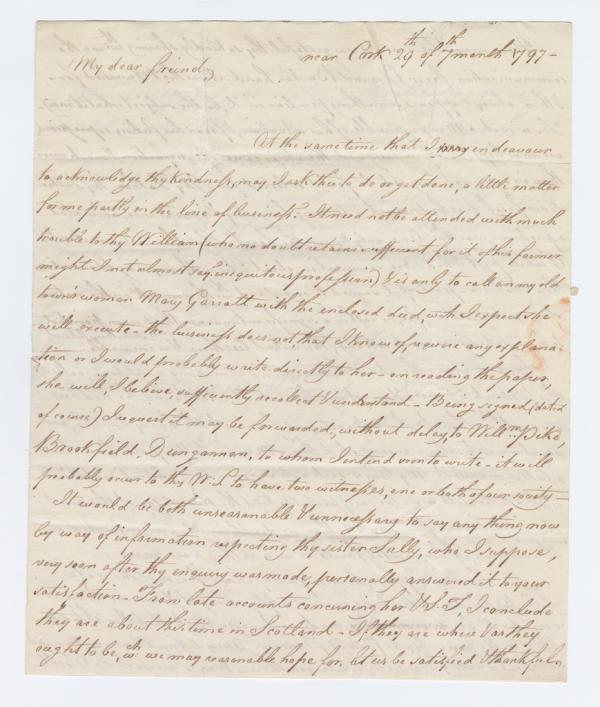 near Cork 29th of 7th month 1797-
My dear friend,
At the same time that I endeavour
to acknowledge thy kindness, may I ask thee to do or get done, a little matter
for me partly in the line of business. It need not be attended with much
trouble to thy William (who no doubt retains sufficient for it of his former
might I not almost say, iniquitous profession) & is only to call on my old
towns woman Mary Garratt with the enclosed deed, wch I expect she
will execute - the business does not, that I know of, require any explana-
tion or I would probably write directly to her - on reading the paper,
she will, I believe, sufficiently recollect & understand - Being signed (dated
of course) I request it may be forwarded, without delay, to Willm. Pike,
Brookfield, Dungannon, to whom I intend soon to write - it will
probably occur to thy W.L to have two witnesses, one or both of our society -
It would be both unreasonable & unnecessary to say any thing now
by way of information respecting thy sister Sally, who I suppose,
very soon after thy enquiry was made, personally answered it to your
satisfaction - From late accounts concerning her & S.T, I conclude
they are about this time in Scotland - If they are where & as they
ought to be, wch we may reasonable hope for, let us be satisfied & thankful,